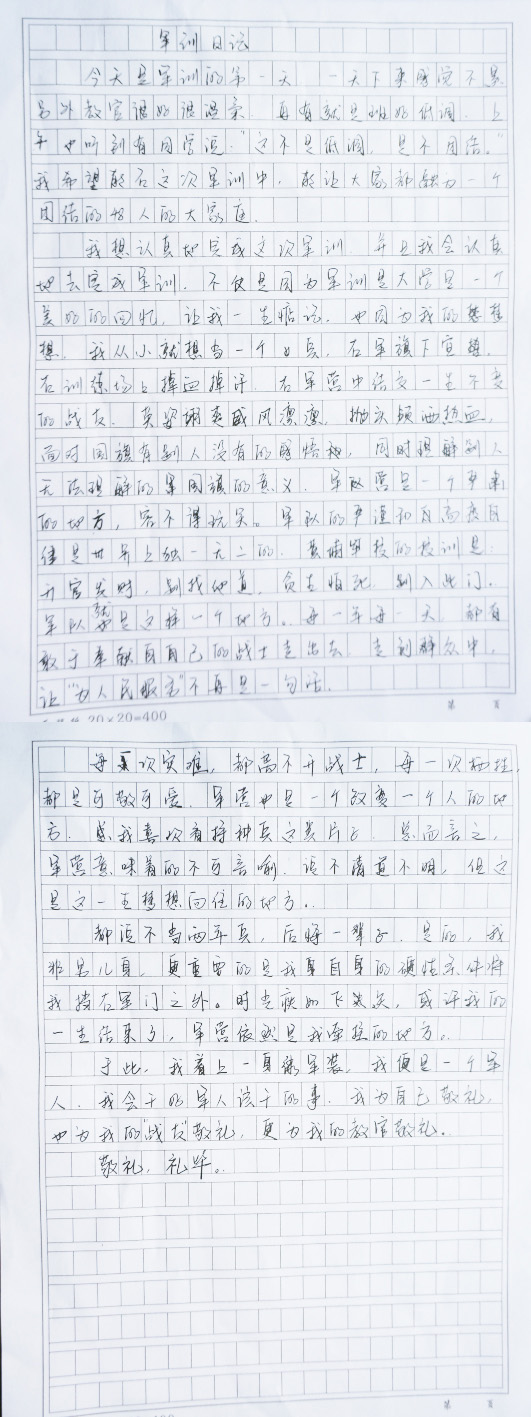 军训日记
今天是军训的第一天 一天下来感觉不累
另外教官很好很温柔. 再有就是班如低调. 上
午也听到有同学说. "这不是低调, 是不团结."
我希望能在这次军训中. 能让大家都融为一个
团结的48人的大家庭.
我想认真地完成这次军训. 并且我会认真
地去完成军训. 不仅是因为军训是大学是一个
美好的回忆, 让我一生惦记. 也因为我的梦想
想. 我从小就想当一个女兵, 在军旗下宣誓,
在训练场上掉血掉汗. 在军营中结交一生不变
的战友. 英姿飒爽威风凛凛, 抛头颅洒热血,
面对国旗有别人没有的感悟, 同时理解别人
无法理解的军国旗的意义. 军营是一个严肃
的地方, 容不得玩笑。军队的严谨和自高度自
律是世界上独一无二的. 黄埔军校的校训是:
升官发财, 别找他道, 贪生怕死, 别入此门.
军队就是这样一个地方. 每一年每一天, 都有
敢于奉献自自己的战士走出去. 走到群众中,
让"为人民服务"不再是一句话.
20×20=400
第 页
每次灾难, 都离不开战士, 每一次牺牲,
都是可敬可爱. 军营也是一个改变一个人的地
方. 我喜欢看特种兵这类片子. 总而言之,
军营意味着的不可言喻. 说不清道不明, 但这
是这一生梦想向往的地方.
都说不当两年兵, 后悔一辈子. 是的, 我
非男儿身, 更重要的是我自身的硬性条件将
我挡在军门之外. 时光疾如飞矢, 或许我的
一生结束了, 军营依然是我牵挂的地方.
于此, 我着上一身绿军装, 我便是一个军
人. 我会干好军人该干的事. 我为自己敬礼,
也为我的"战友"敬礼, 更为我的教官敬礼.
敬礼, 礼毕.
第 页